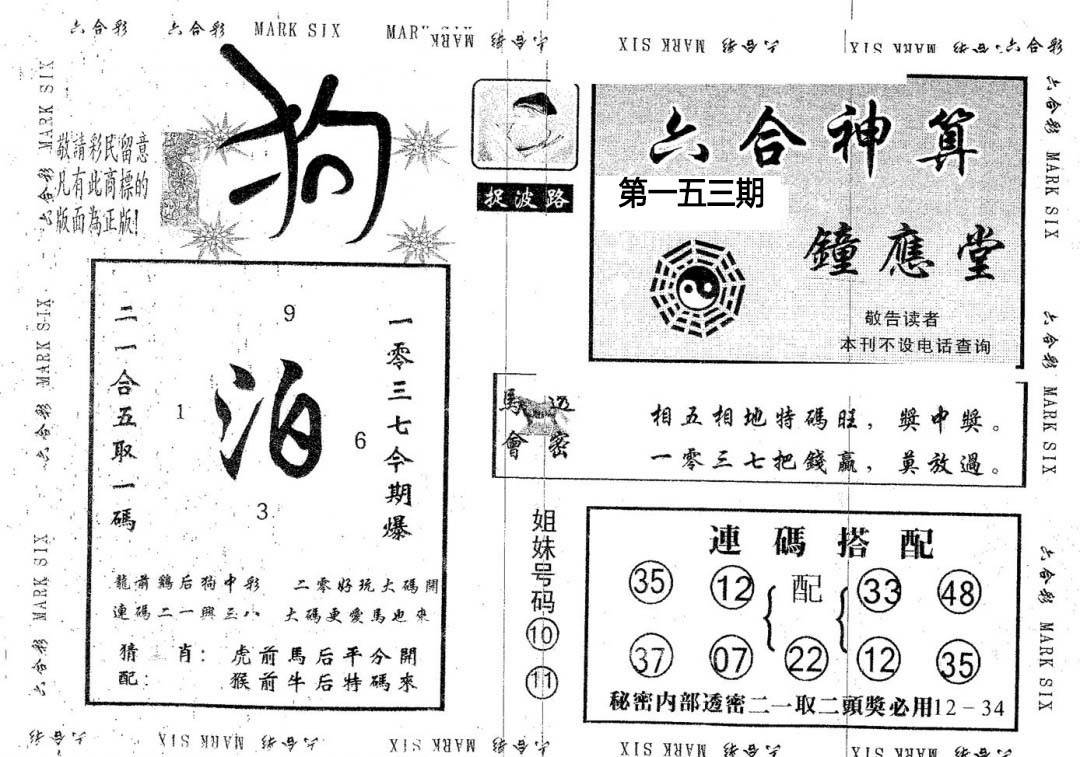 六合彩 六合彩 MARK SIX MARK SIX 六合彩
MARK SIX 六合彩 MARK SIX 六合彩 六合彩
狗
敬請彩民留意
凡有此商標的
版面為正版!
捉波路
六合神算
第一五三期
鐘應堂
敬告读者
本刊不设电话查询
二一合五取一碼
9
1
泊
6
3
一零三七今期爆
龍前鷄后狗中彩 二零好玩大碼開
連碼二一興三八 大碼更愛馬也來
猜 肖: 虎前馬后平分開
配: 猴前牛后特碼來
馬會
透密
相五相地特碼旺,獎中獎。
一零三七把錢贏,莫放過。
姐妹号码
10
11
連碼搭配
35 12 配 33 48
37 07 22 12 35
秘密内部透密二一取二頭獎必用12-34
六合彩 MARK SIX 六合彩 MARK SIX 六合彩 MARK SIX
六合彩 MARK SIX 六合彩 MARK SIX 六合彩 MARK SIX
六合彩 MARK SIX 六合彩 MARK SIX 六合彩
MARK SIX 六合彩 MARK SIX 六合彩